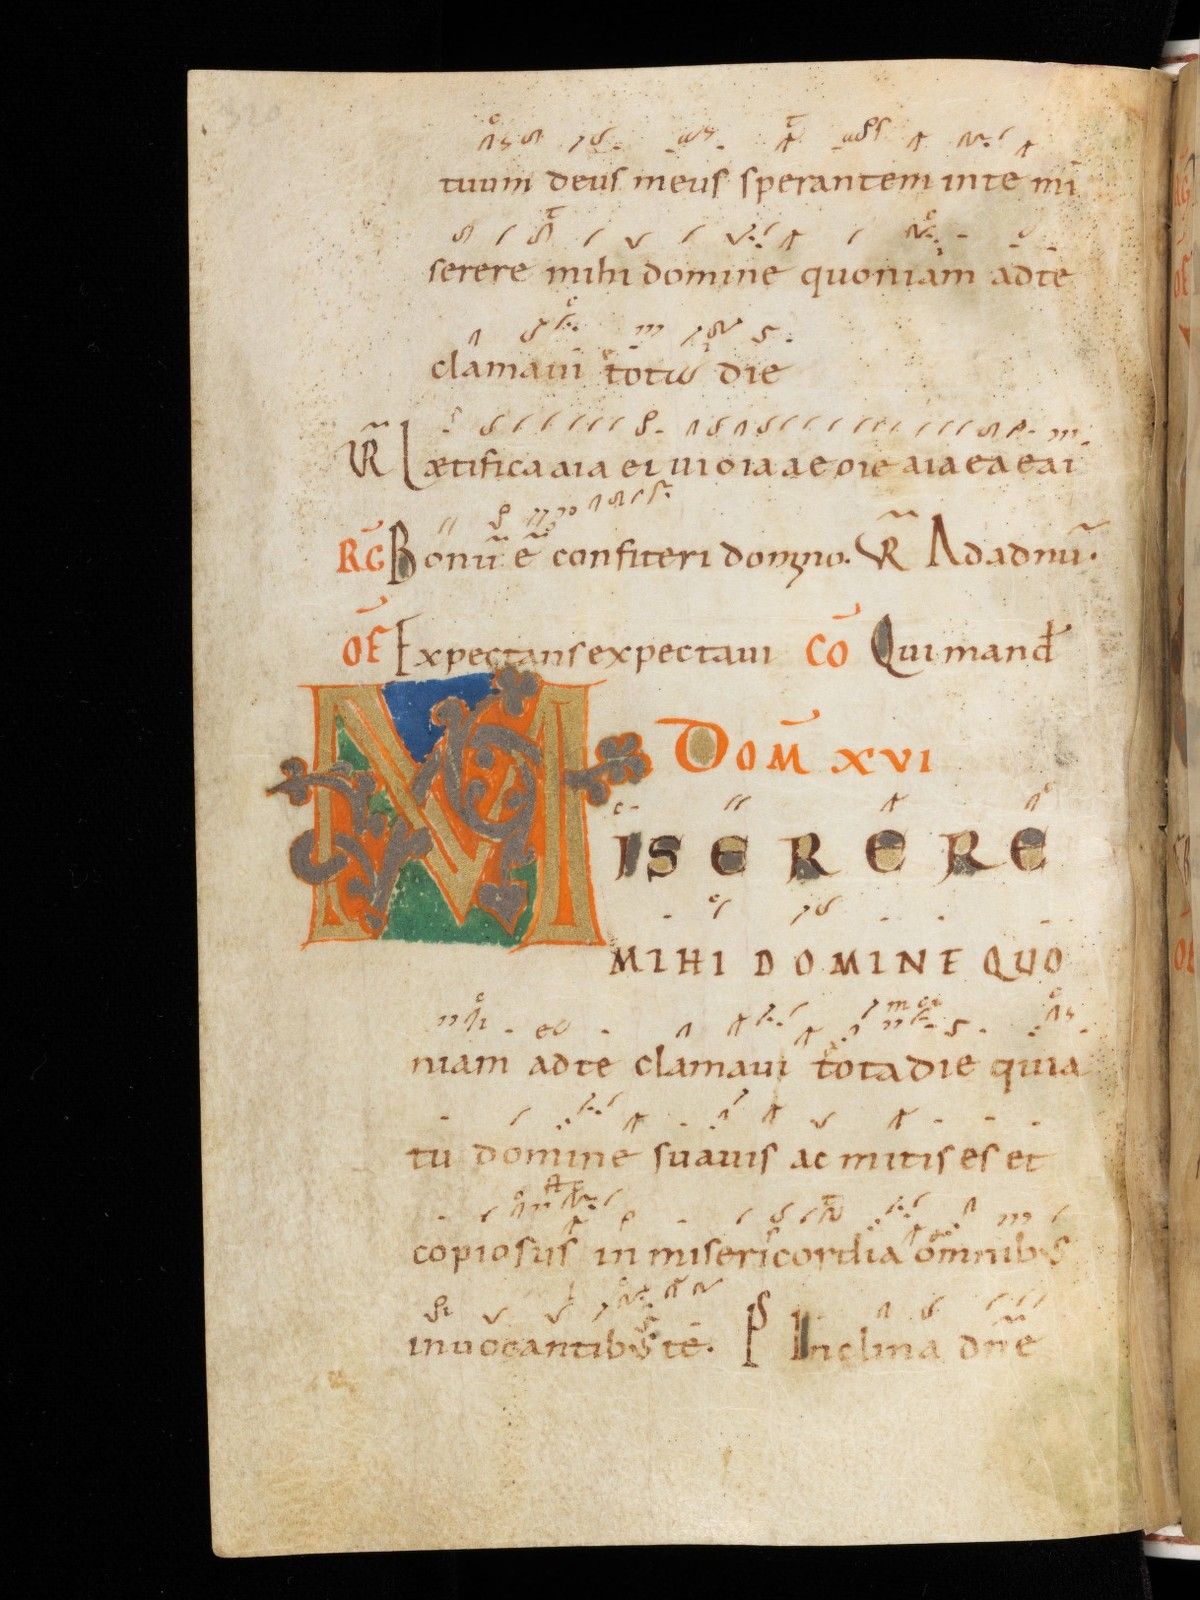 tuum deus meus sperantem in te mi
serere mihi domine quoniam ad te
clamavi tota die
VR Lætifica aia ei ui o ia ae oie aia ea eai
RG Bonū ē confiteri domino. VR Ad adnū.
OF Expectans expectaui CO Qui mand
DOM XVI
MISERERE
MIHI DOMINE QUO
niam ad te clamaui tota die quia
tu domine suauis ac mitis es et
copiosus in misericordia omnibus
inuocantibus te. PS Inclina dñe